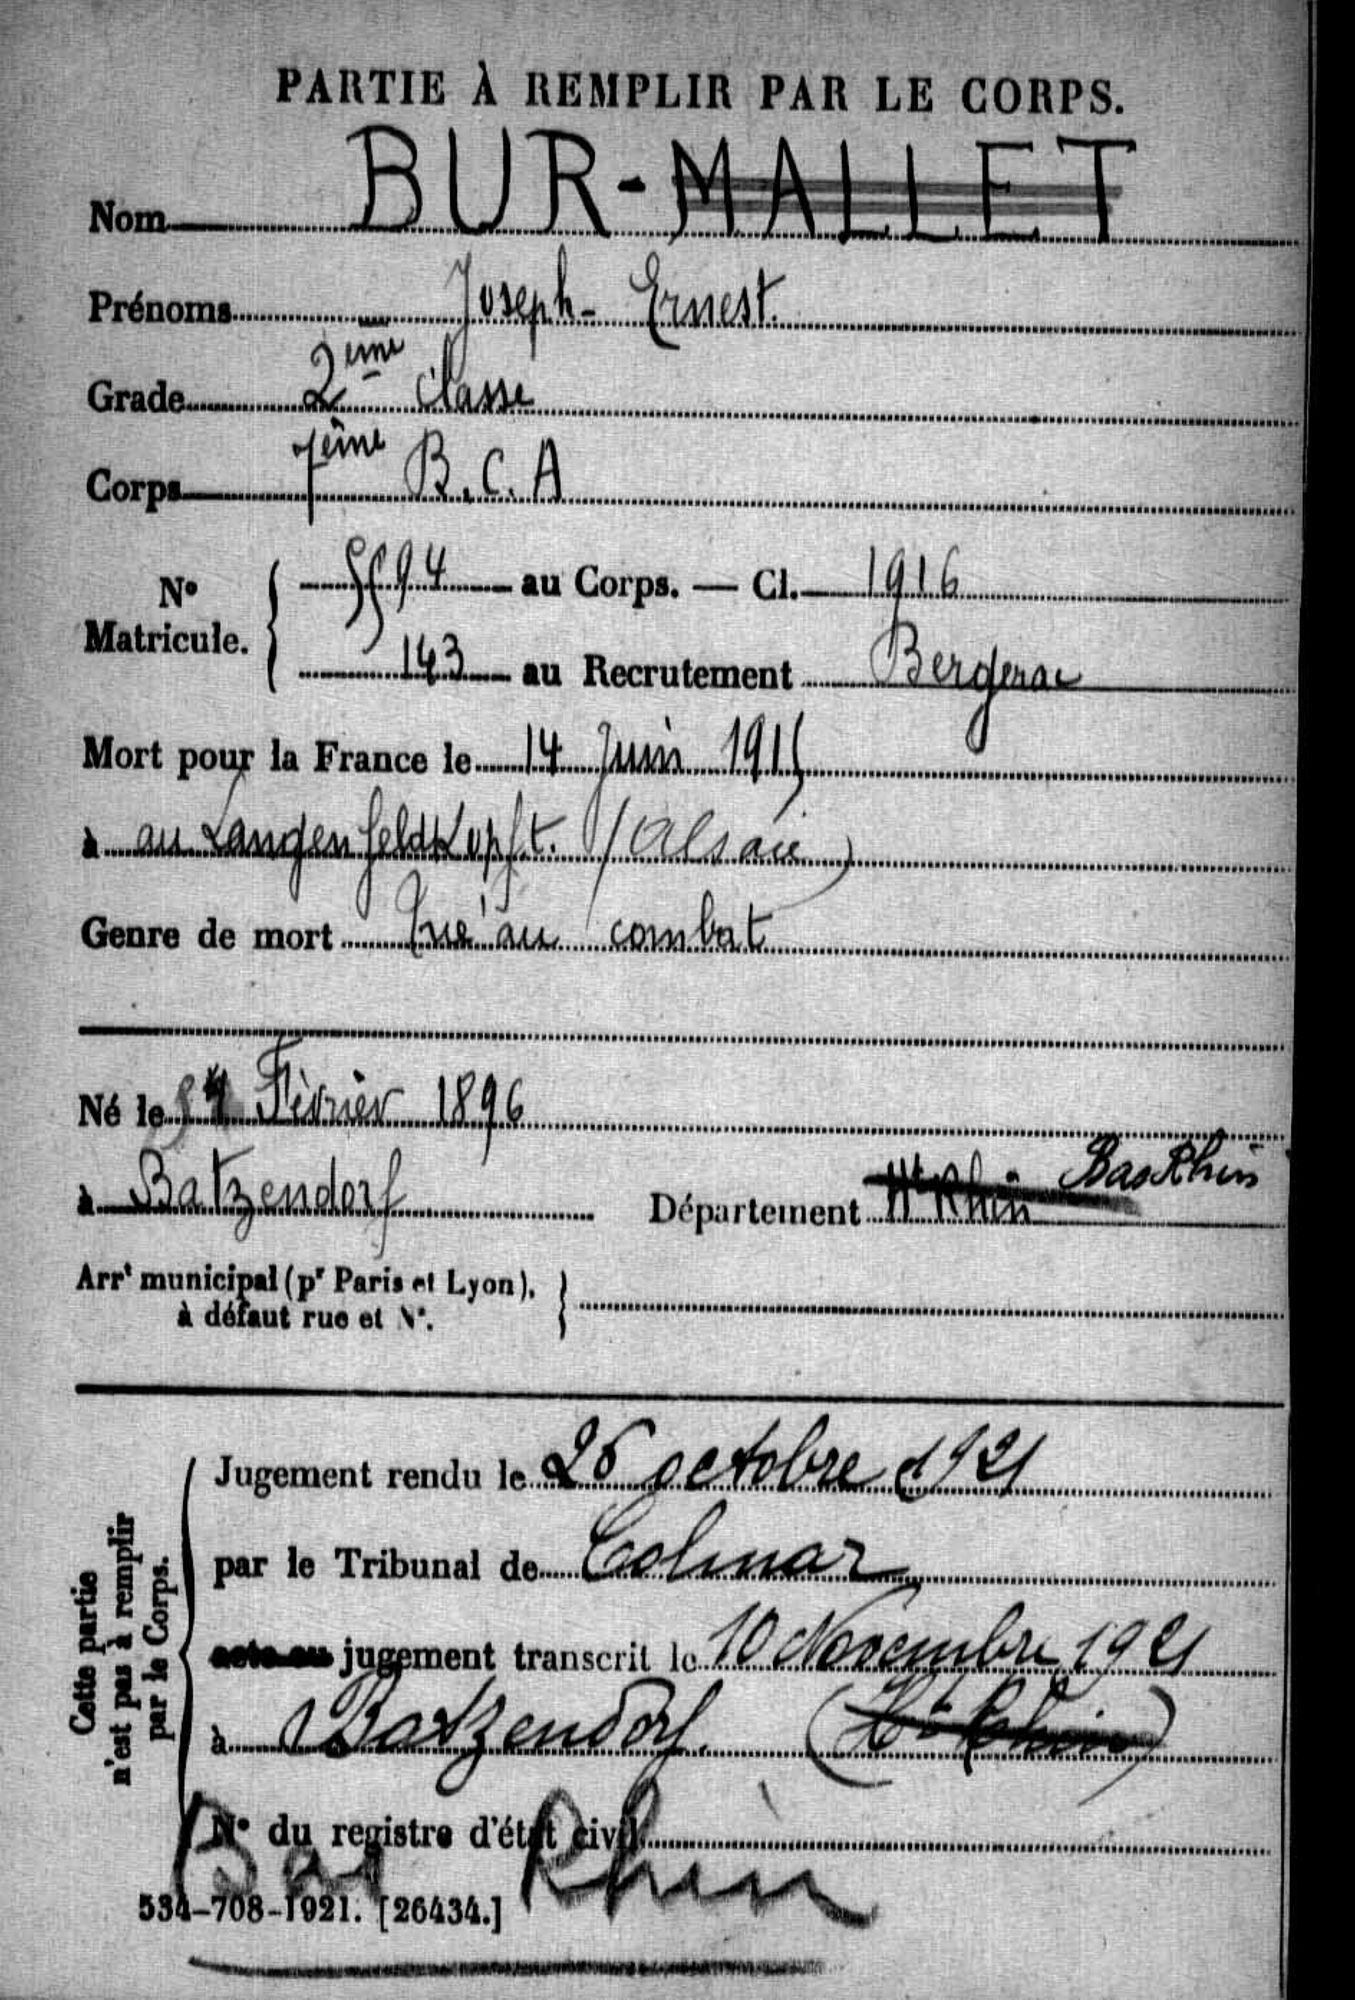 PARTIE À REMPLIR PAR LE CORPS.
Nom BUR-MALLET
Prénoms Joseph-Ernest.
Grade 2ème classe
Corps 7ème B.C.A
N° Matricule. 5594 au Corps. — Cl. 1916
143 au Recrutement Bergerac
Mort pour la France le 14 Juin 1915
à au Langenfeldkopft. (Alsace)
Genre de mort Tué au combat
Né le Février 1896
à Batzendorf Département Ht Rhin Bas Rhin
Arrt municipal (pr Paris et Lyon),
à défaut rue et N°.
Cette partie
n'est pas à remplir
par le Corps.
Jugement rendu le 26 octobre 1921
par le Tribunal de Colmar
acte ou jugement transcrit le 10 Novembre 1921
à Batzendorf. (Ht Rhin)
N° du registre d'état civil
Bas Rhin
534-708-1921. [26434.]